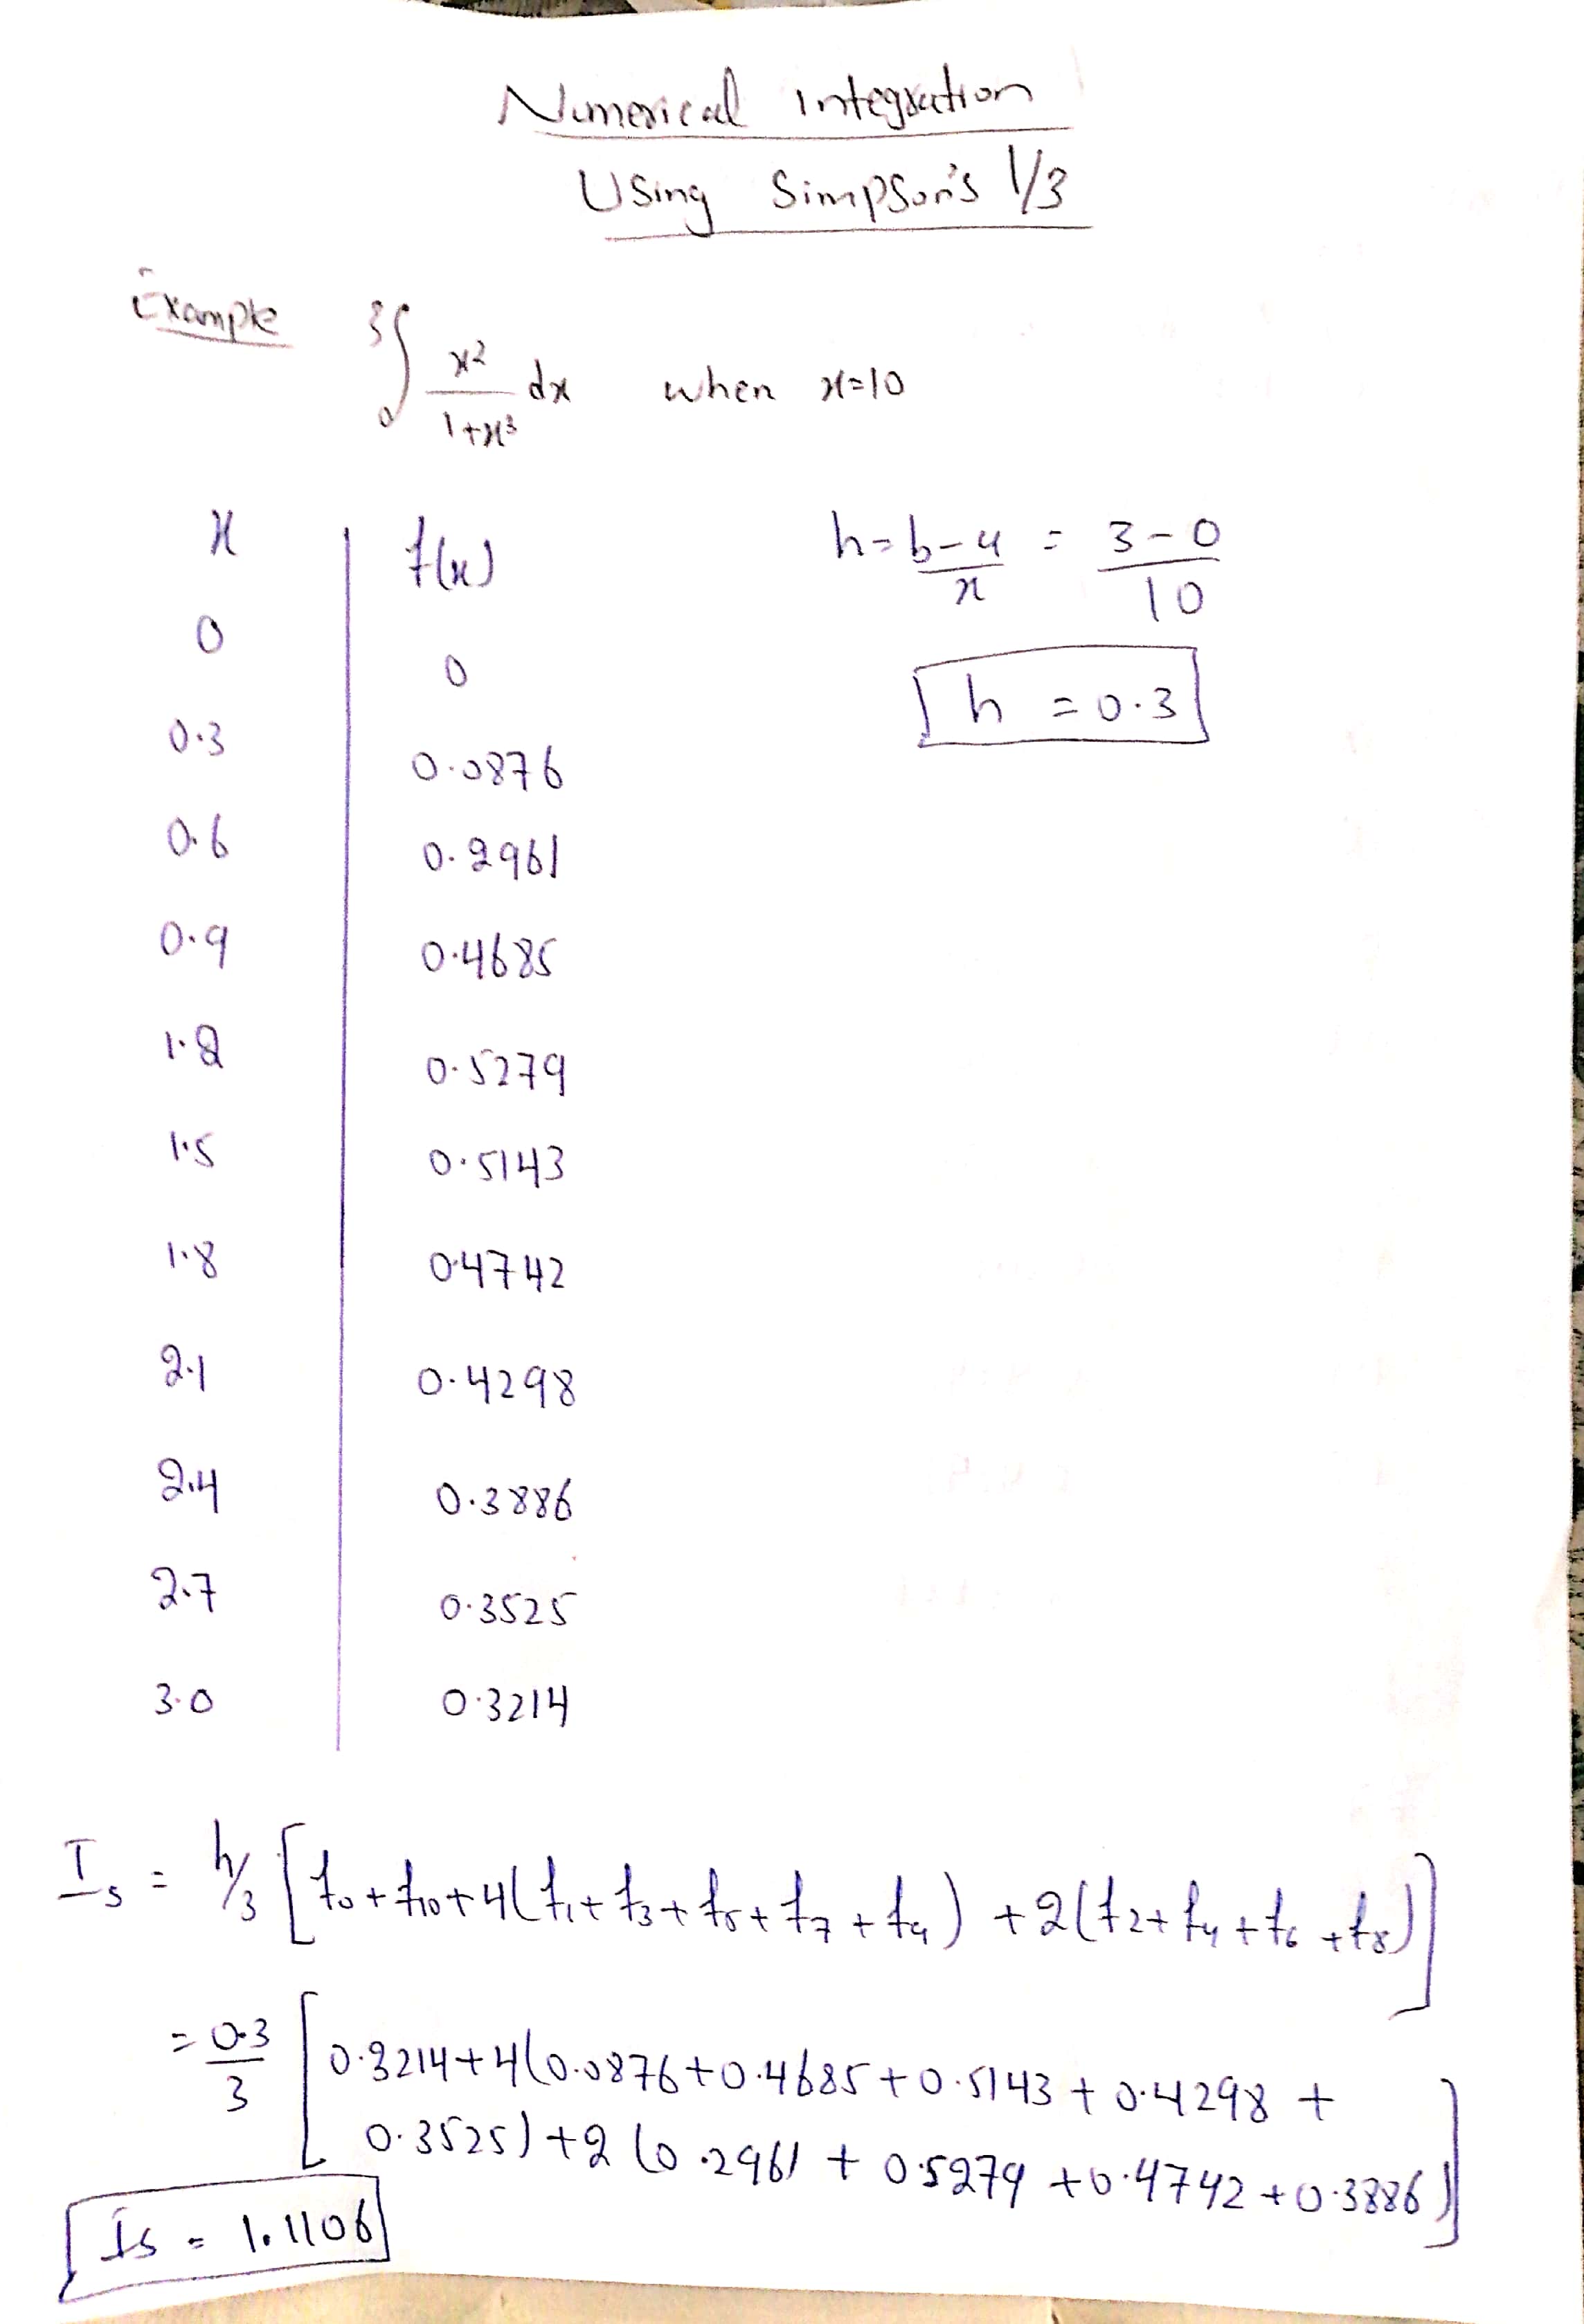 Numerical integration
Using Simpson's 1/3
Example 3∫0 x²/1+x³ dx when x=10
x f(x) h=b-a/n = 3-0/10
0 0
h = 0.3
0.3 0.0876
0.6 0.2961
0.9 0.4685
1.2 0.5279
1.5 0.5143
1.8 0.4742
2.1 0.4298
2.4 0.3886
2.7 0.3525
3.0 0.3214
Is = h/3 [f0+f10+4(f1+f3+f5+f7+f9)+2(f2+f4+f6+f8)]
= 0.3/3 [0.3214+4(0.0876+0.4685+0.5143+0.4298+
0.3525)+2(0.2961+0.5279+0.4742+0.3886)]
Is = 1.1106